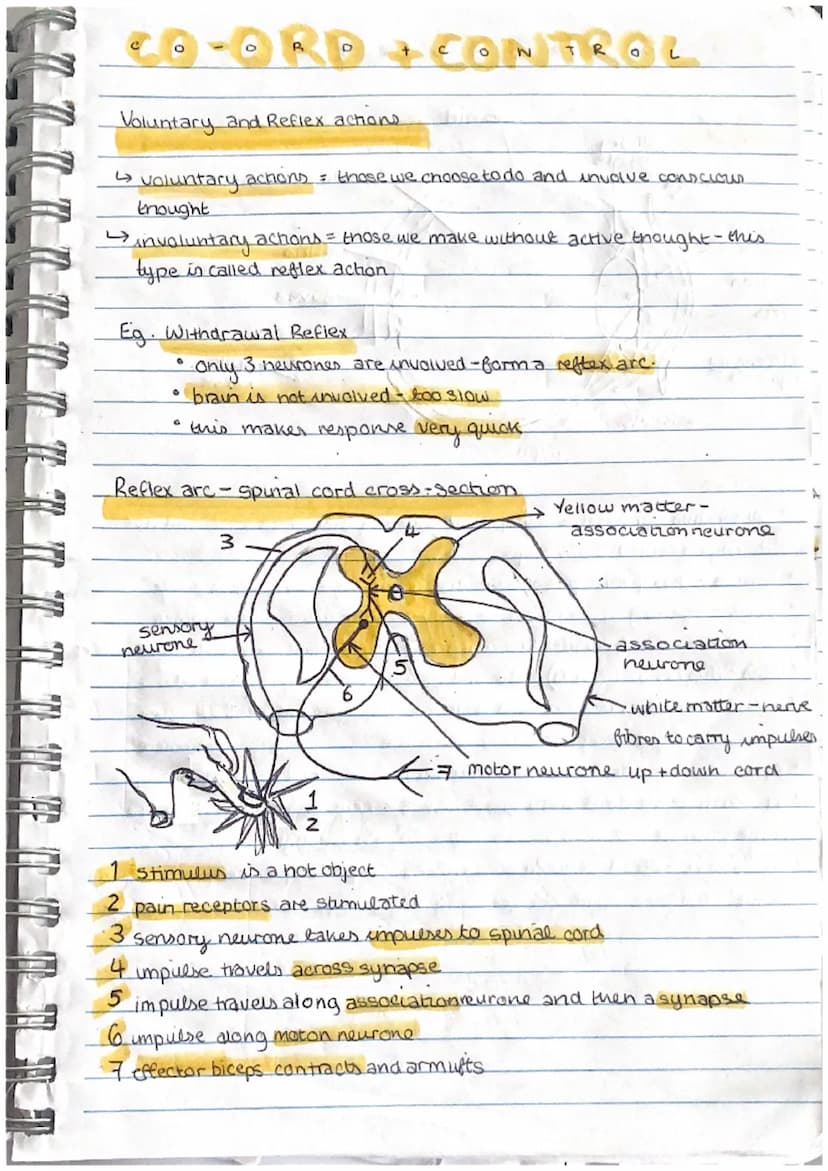 CO-ORD + CONTROL
Voluntary and Reflex actions
↳ voluntary actions = those we choose to do and involve conscious
thought
↳ involuntary actions = those we make without active thought - this
type is called reflex action
Eg. Withdrawal Reflex
• only 3 neurones are involved - form a reflex arc.
• brain is not involved - too slow
• this makes response very quick
Reflex arc - spinal cord cross-section
Yellow matter -
association neurone
4
3
sensory
neurone
association
neurone
5
6
white matter - nerve
fibres to carry impulses
up + down cord
7 motor neurone
1
2
1 stimulus is a hot object
2 pain receptors are stimulated
3 sensory neurone takes impulses to spinal cord
4 impulse travels across synapse
5 impulse travels along association neurone and then a synapse
6 impulse along moton neurone
7 effector biceps contracts and arm lifts